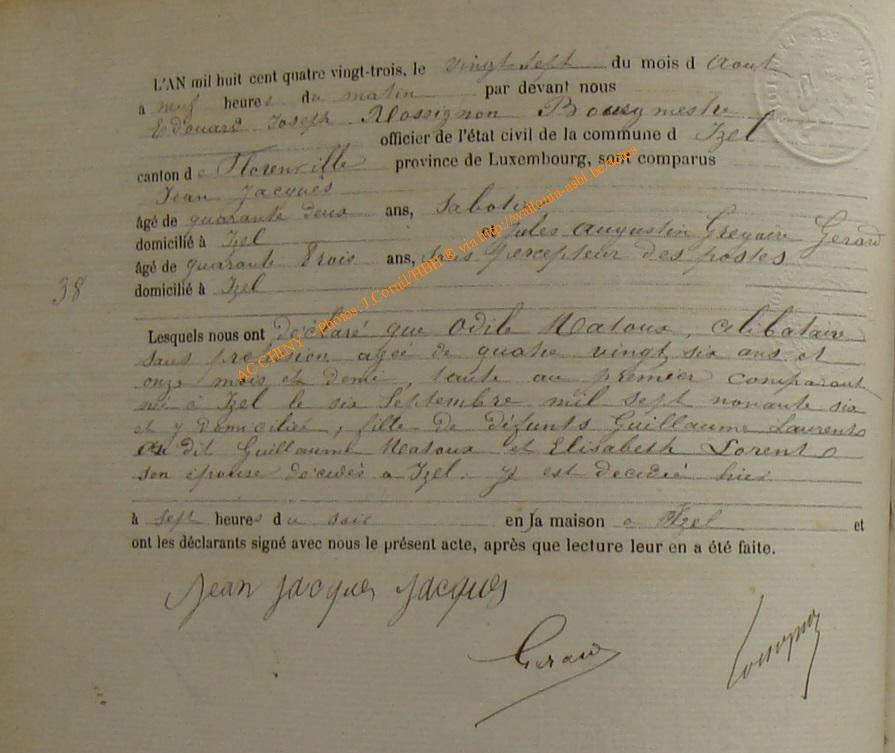 L'AN mil huit cent quatre vingt-trois, le vingt sept du mois d Aout
à neuf heures du matin par devant nous
Edouard Joseph Rossignon Bourgmestre
officier de l'état civil de la commune d Izel
canton de Florenville province de Luxembourg, sont comparus
Jean Jacques
âgé de quarante deux ans, Sabotier
domicilié à Izel et Jules Augustin Gregoire Gerard
âgé de quarante trois ans, Sous percepteur des postes
38
domicilié à Izel
Lesquels nous ont déclaré que Odile Matoux, célibataire
sans profession agée de quatre vingt six ans et
onze mois et demi, tante au premier comparant
né à Izel le six Septembre mil sept nonante six
et y domiciliée, fille de défunts Guillaume Laurent
dit Guillaume Matoux et Elisabeth Lorent
son épouse décédés à Izel. y est decedée hier
à sept heures du soir en la maison a Izel et
ont les déclarants signé avec nous le présent acte, après que lecture leur en a été faite.
Jean Jacques Jacques
Gerard
AC CHINY - Photos: J Cornil/HBH® via http://wallonia-asbl.be/actes